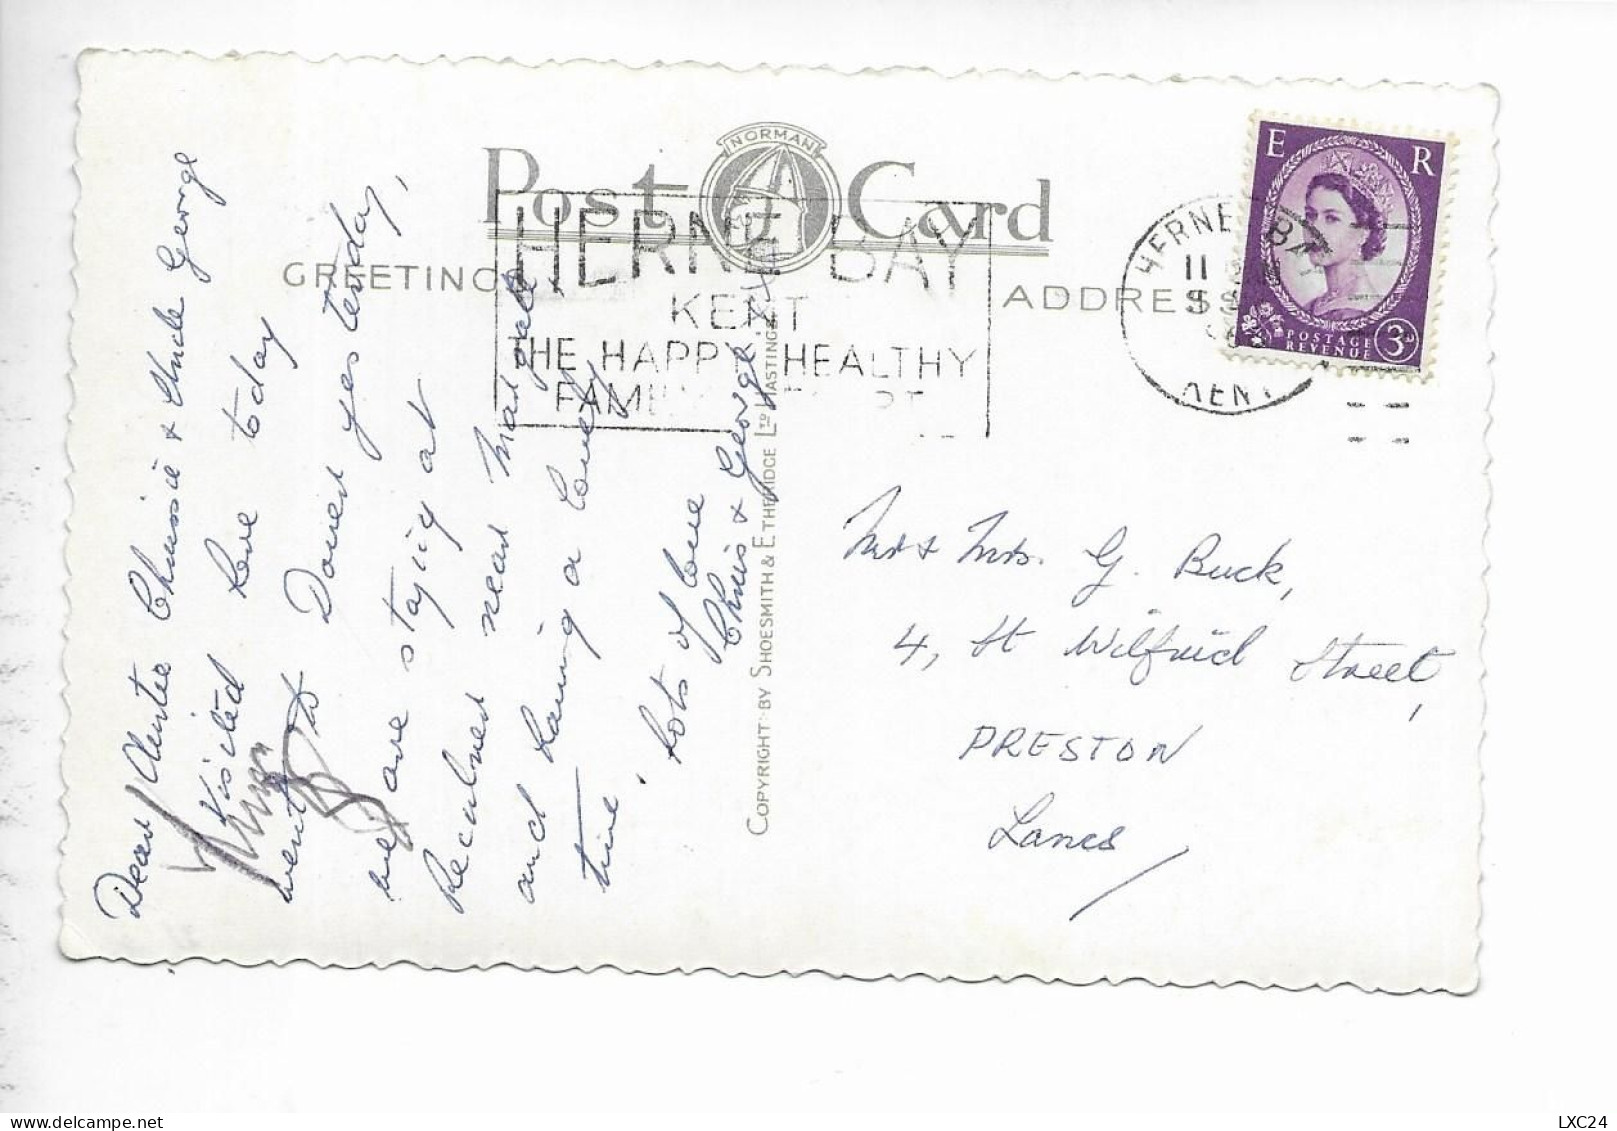 Post Card
NORMAN
GREETINGS
ADDRESS
HERNE BAY
KENT
THE HAPPY HEALTHY
FAMILY RESORT
HERNE BAY
11
KENT
E R
POSTAGE
REVENUE
3D
Dear Auntie Chrissie & Uncle George
Visited here today
went to Dover yesterday,
we are staying at
Reculver near Margate
and having a lovely
time. Lots of love
Chris & George
COPYRIGHT BY SHOESMITH & ETHERIDGE LTD HASTINGS
Mr & Mrs. G. Buck,
4, St Wilfrid Street,
PRESTON
Lancs
LXC24